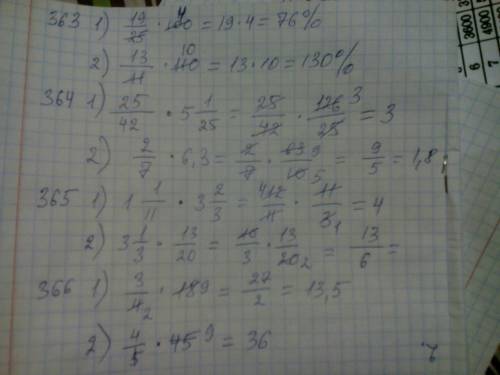 363 1) 19/25 · 100 4 = 19·4 = 76%
2) 13/11 · 110 10 = 13·10 = 130%
364 1) 25/42 · 5 1/25 = 25/42 · 126/25 3 = 3
2) 2/7 · 6,3 = 2/7 · 63/10 9 5 = 9/5 = 1,8
365 1) 1 1/11 · 3 2/3 = 12/11 4 · 11/3 1 = 4
2) 3 1/3 · 13/20 = 10/3 · 13/20 2 = 13/6 =
366 1) 3/4 2 · 18 9 = 27/2 = 13,5
2) 4/5 · 45 9 = 36
3600
6
4900
7